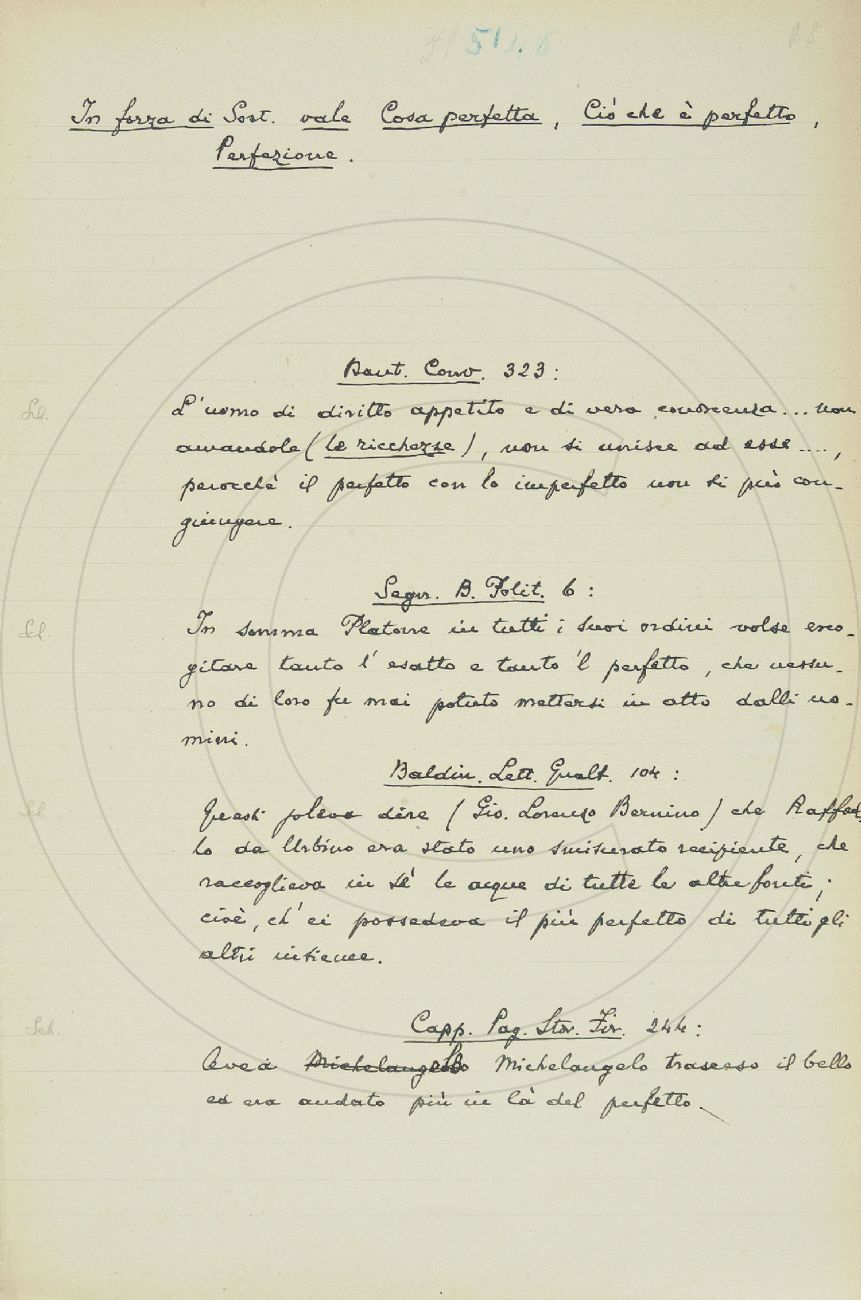 51. 6
In forza di Sost. vale Cosa perfetta, Ciò che è perfetto,
Perfezione.
Dant. Conv. 323:
L'uomo di diritto appetito e di vera conoscenza... non
amandole (le ricchezze), non si unisce ad esse....,
perocchè il perfetto con lo imperfetto non si può con-
giungere.
Segn. B. Polit. 6:
In somma Platone in tutti i suoi ordini volse exco-
gitare tanto l'esatto e tanto 'l perfetto, che nessu-
no di loro fu mai potuto mettersi in atto dalli uo-
mini.
Baldin. Lett. Gualt. 104:
Questi soleva dire (Gio. Lorenzo Bernino) che Raffael-
lo da Urbino era stato uno smisurato recipiente, che
raccoglieva in sè le acque di tutte le altre fonti;
cioè, ch'ei possedeva il più perfetto di tutti gli
altri insieme.
Capp. Pag. Stor. Fir. 244:
Avea Michelangelo Michelangelo trasceso il bello
ed era andato più in là del perfetto.